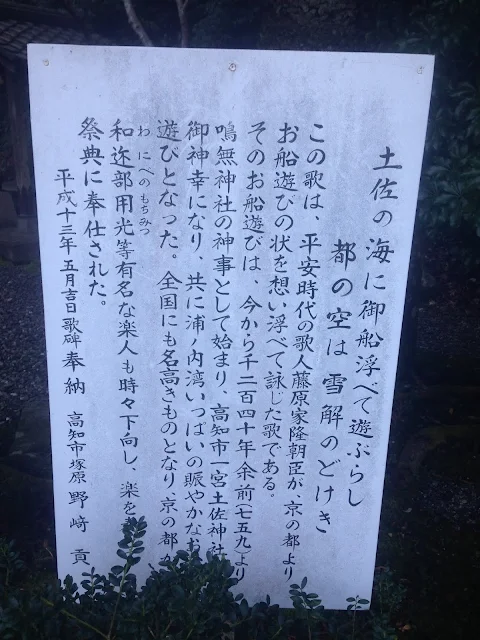 土佐の海に御船浮べて遊ぶらし
都の空は 雪解のどけき
この歌は、平安時代の歌人藤原家隆朝臣が、京の都より
お船遊びの状を想い浮べて詠じた歌である。
そのお船遊びは、今から千二百四十年余前(七五九)より
鳴無神社の神事として始まり、高知市一宮土佐神社
御神幸になり、共に浦ノ内湾いっぱいの賑やかなお
遊びとなった。全国にも名高きものとなり、京の都か
和迩部用光等有名な楽人も時々下向し、楽を
わにべのもちみつ
祭典に奉仕された。
平成十三年五月吉日歌碑奉納 高知市塚原 野﨑 貢